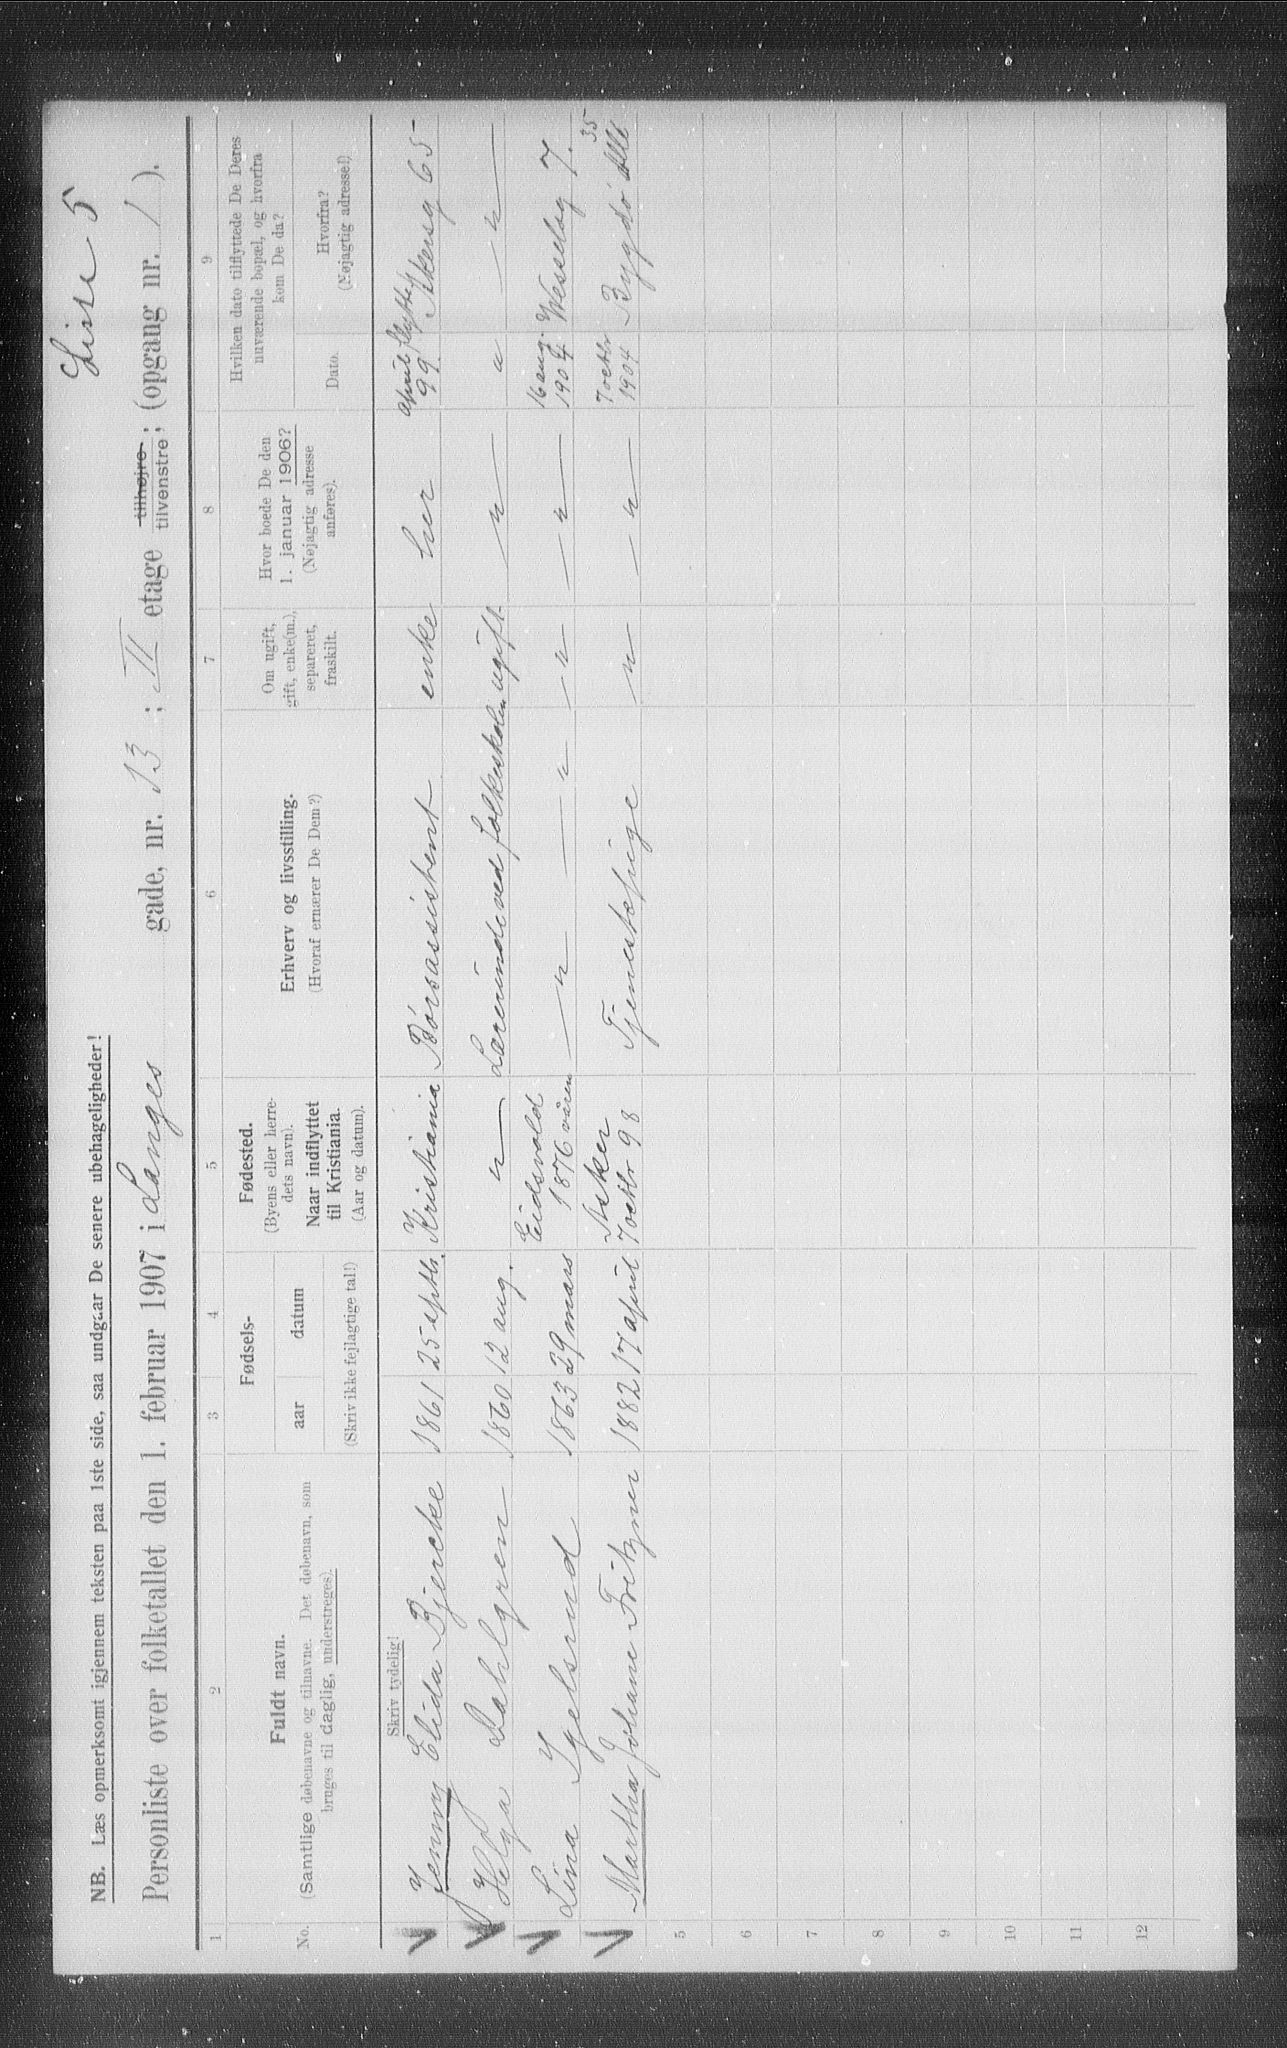 Liste 5
NB. Læs opmerksomt igjennem teksten paa 1ste side, saa undgaar De senere ubehageligheder!
Personliste over folketallet den 1. februar 1907 i Langes gade, nr. 13 ; II etage tilhøjre tilvenstre; (opgang nr. 1 ).
1 2 3 4 5 6 7 8 9
No.
Fuldt navn.
(Samtlige døbenavne og tilnavne. Det døbenavn, som
bruges til daglig, understreges).
Fødsels-
aar
datum
(Skriv ikke fejlagtige tal!)
Fødested.
(Byens eller herre-
dets navn).
Naar indflyttet
til Kristiania.
(Aar og datum).
Erhverv og livsstilling.
(Hvoraf ernærer De Dem?)
Om ugift,
gift, enke(m.),
separeret,
fraskilt.
Hvor boede De den
1. januar 1906?
(Nøjagtig adresse
anføres).
Hvilken dato tilflyttede De Deres
nuværende bopæl, og hvorfra
kom De da?
Dato.
Hvorfra?
(Nøjagtig adresse!)
Skriv tydelig!
Jenny Elida Bjercke 1861 25 septbr. Kristiania Børsassistent enke her april flytte 99. Akersg 65
Helga Dahlgren 1860 12 aug. — " — Lærerinde ved folkeskolen ugift — " — " — " —
Lina Igelsrud 1863 29 mars Eidsvold 1876 våren — " — " — " — — " — 16 aug. 1904 Wesselsg 7.
Martha Johane Fritzner 1882 17 april Asker 7 octbr 98 Tjenestepige — " — — " — 7 octbr 1904 Bygdø Alle 35
5
6
7
8
9
10
11
12